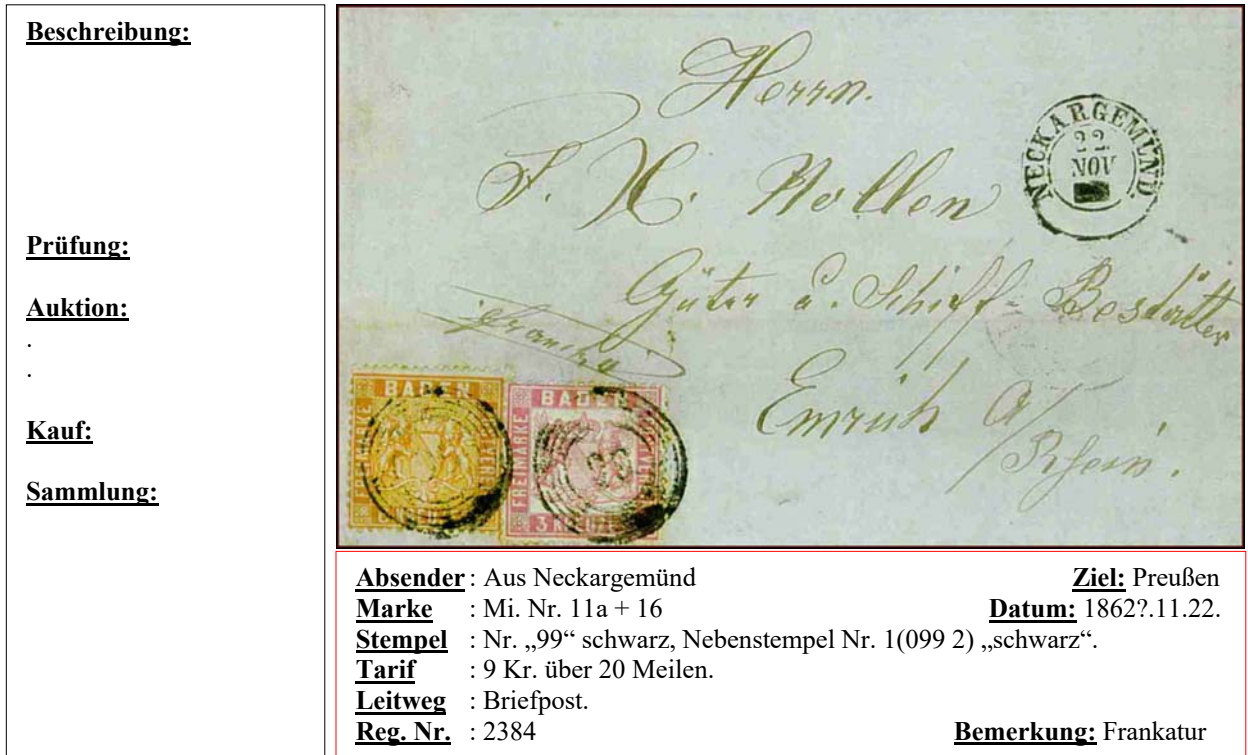 Beschreibung:
Prüfung:
Auktion:
.
.
Kauf:
Sammlung:
Herrn.
F. X.
Güter u. Schiff-Bestätter
Emrich a/
Rhein.
franko
NECKARGEMÜND.
22
NOV
BADEN
FREIMARKE
BADEN
FREIMARKE
3 KREUZER
Absender : Aus Neckargemünd Ziel: Preußen
Marke : Mi. Nr. 11a + 16 Datum: 1862?.11.22.
Stempel : Nr. „99“ schwarz, Nebenstempel Nr. 1(099 2) „schwarz“.
Tarif : 9 Kr. über 20 Meilen.
Leitweg : Briefpost.
Reg. Nr. : 2384 Bemerkung: Frankatur